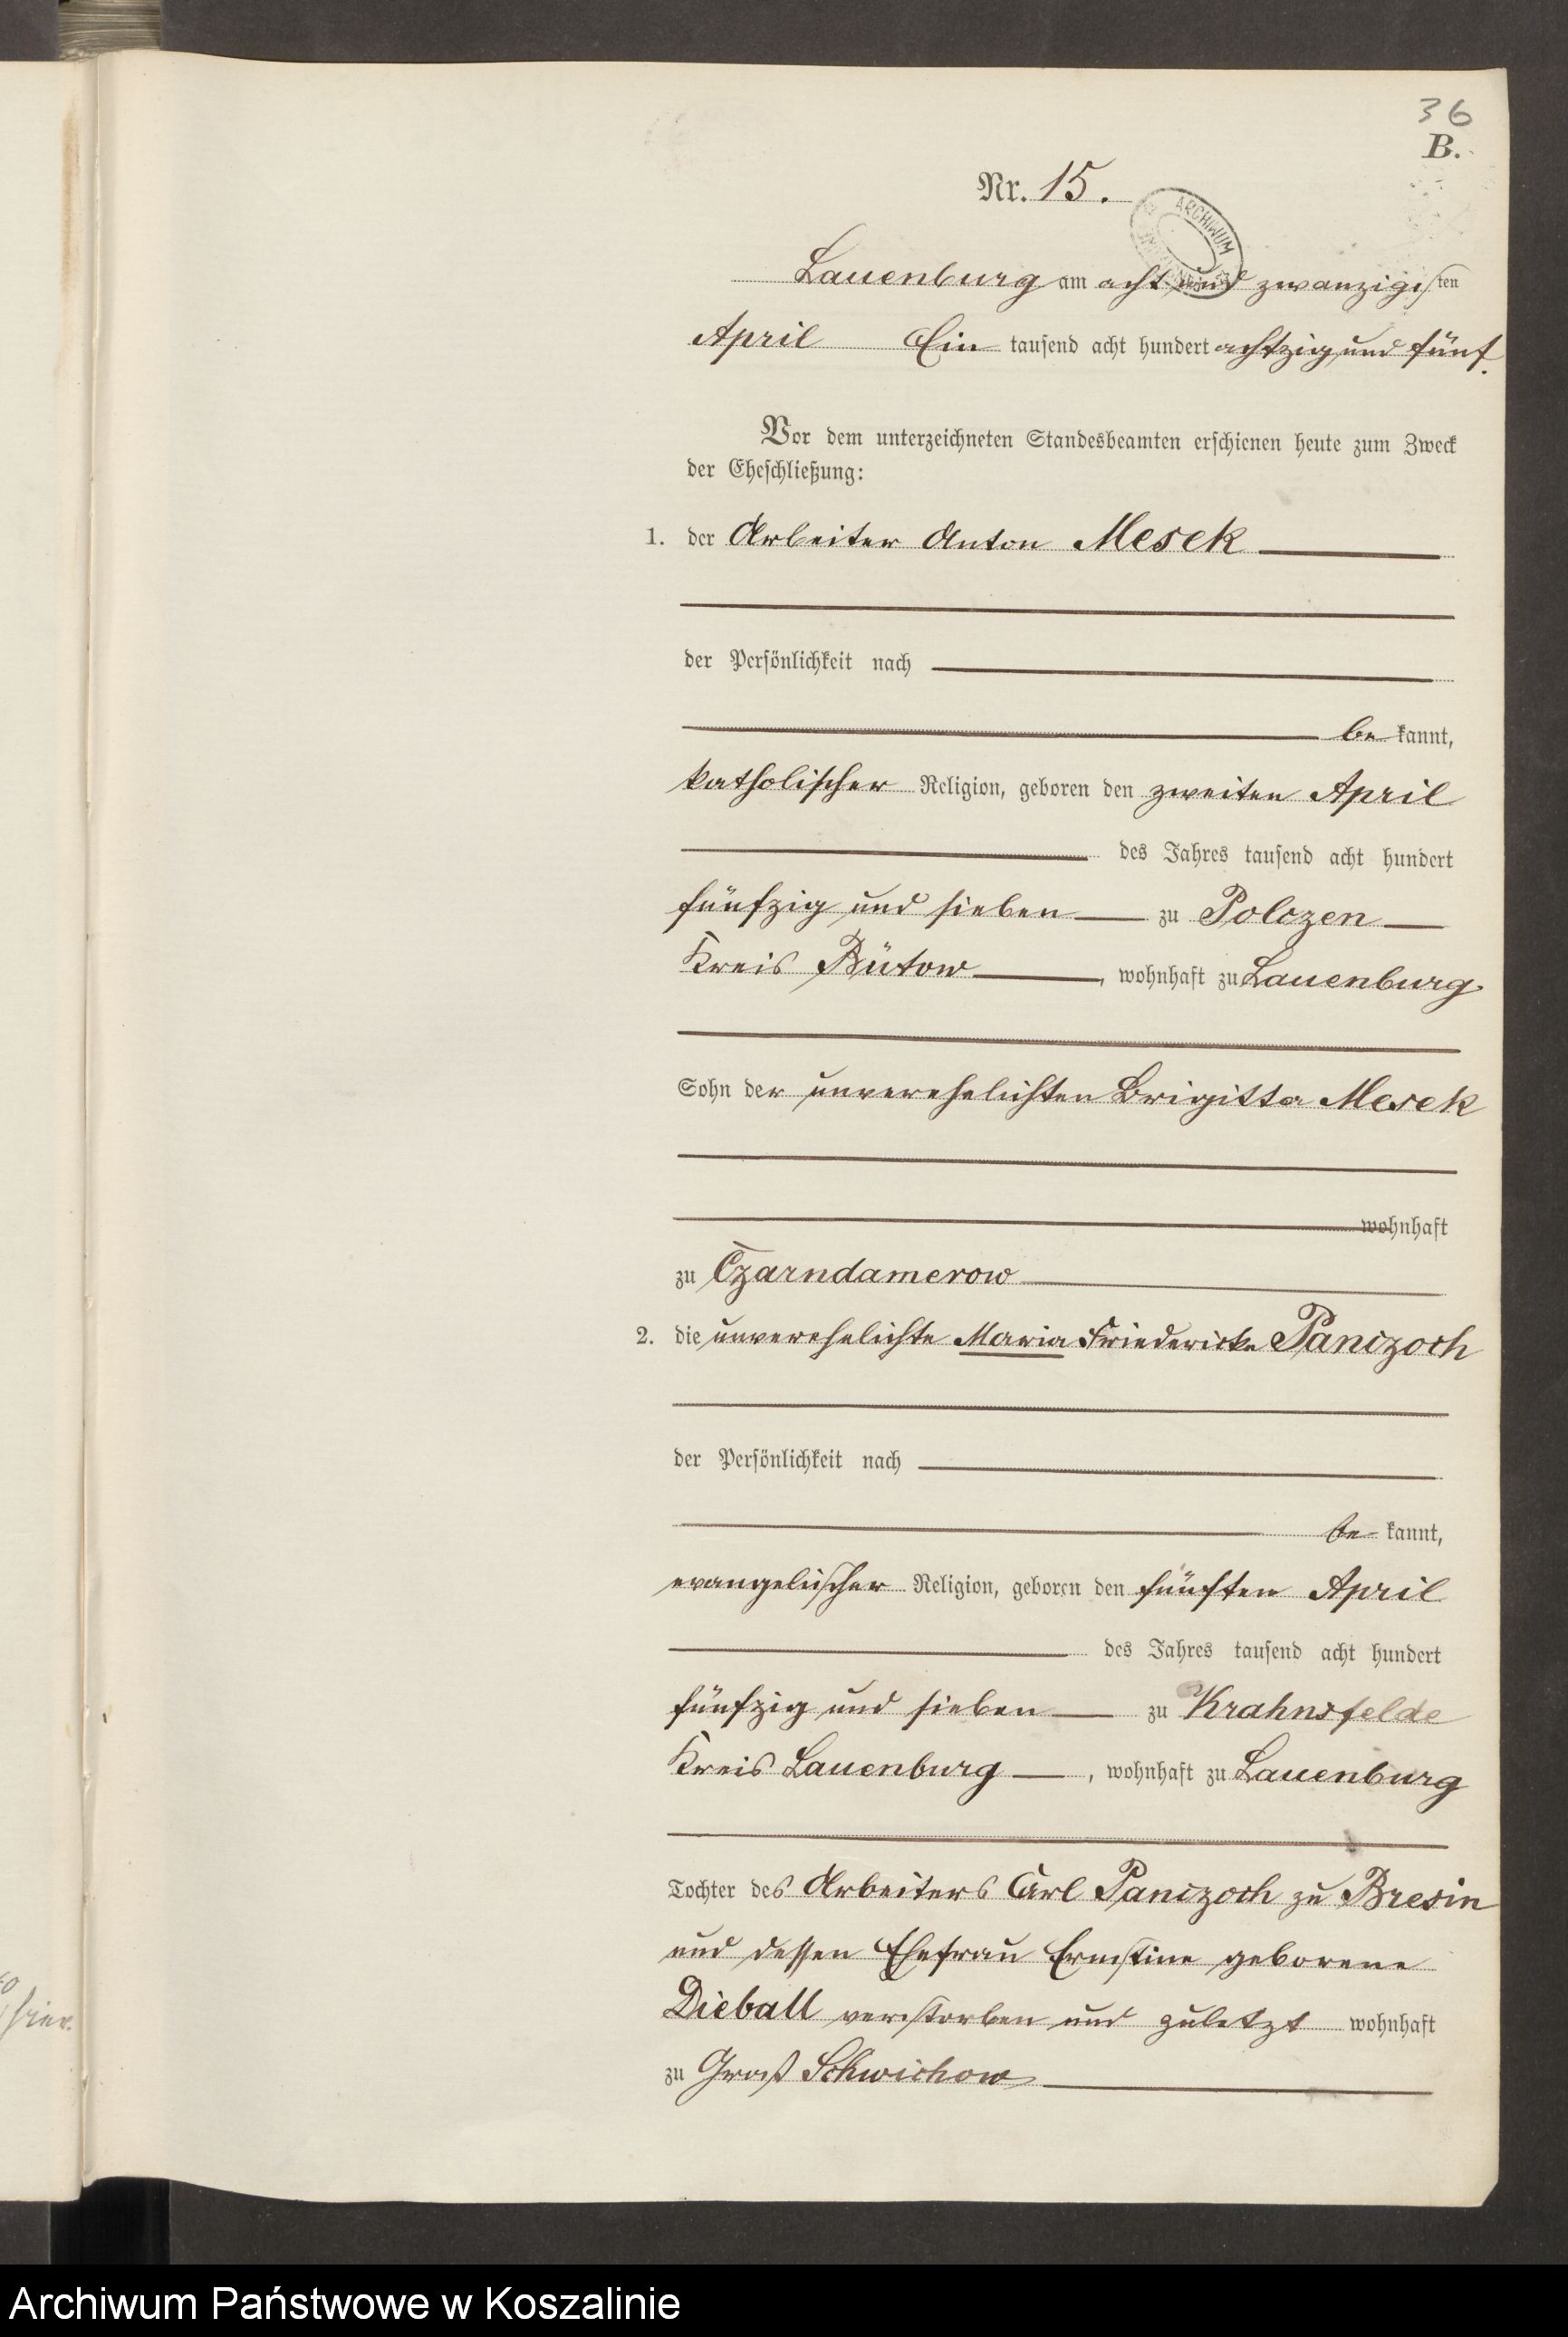 36
B.
Nr. 15.
ARCHIWUM
Lauenburg am acht und zwanzigsten
April Ein tausend acht hundert achtzig und fünf.
Vor dem unterzeichneten Standesbeamten erschienen heute zum Zweck
der Eheschließung:
1. der Arbeiter Anton Mesek
der Persönlichkeit nach
be kannt,
katholischer Religion, geboren den zweiten April
des Jahres tausend acht hundert
fünfzig und sieben zu Polczen
Kreis Bütow, wohnhaft zu Lauenburg
Sohn der unverehelichten Brigitta Mesek
wohnhaft
zu Czarndamerow
2. die unverehelichte Maria Friedericke Panczoch
der Persönlichkeit nach
be kannt,
evangelischer Religion, geboren den fünften April
des Jahres tausend acht hundert
fünfzig und sieben zu Krahnsfelde
Kreis Lauenburg, wohnhaft zu Lauenburg
Tochter des Arbeiters Carl Panczoch zu Bresin
und dessen Ehefrau Ernstine geborene
Dieball verstorben und zuletzt wohnhaft
zu Groß Schwichow
Archiwum Państwowe w Koszalinie